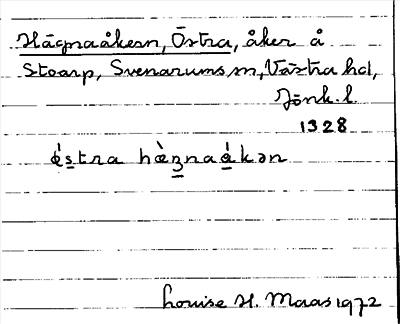 Hägnaåkern, Östra, åker å
Stoarp, Svenarums sn, Västra hd,
Jönk. l.
1328
ɷ́stra hæ̀ʒnaɷ́kən
Louise H. Maas 1972